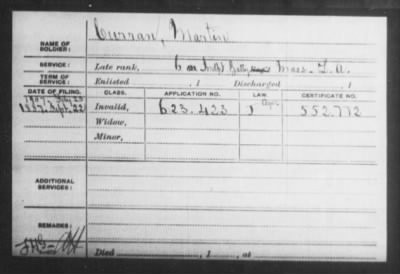 Curran, Martin
NAME OF SOLDIER:
SERVICE: Late rank, 6 Batty Mass. L. A.
TERM OF SERVICE: Enlisted , 1 Discharged , 1
DATE OF FILING. CLASS. APPLICATION NO. LAW. CERTIFICATE NO.
1887. Sept. 22 Invalid, 623.423 552.772
Widow,
Minor,
ADDITIONAL SERVICES:
REMARKS:
Died , 1 , at